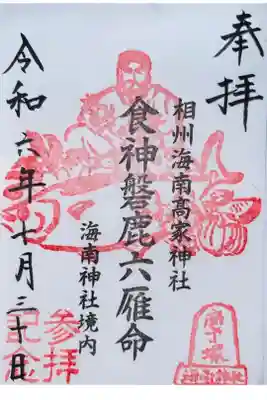 奉拝
相州海南高家神社
食神磐鹿六雁命
海南神社境内
令和六年十月三十日
参拝
記念
庖丁塚